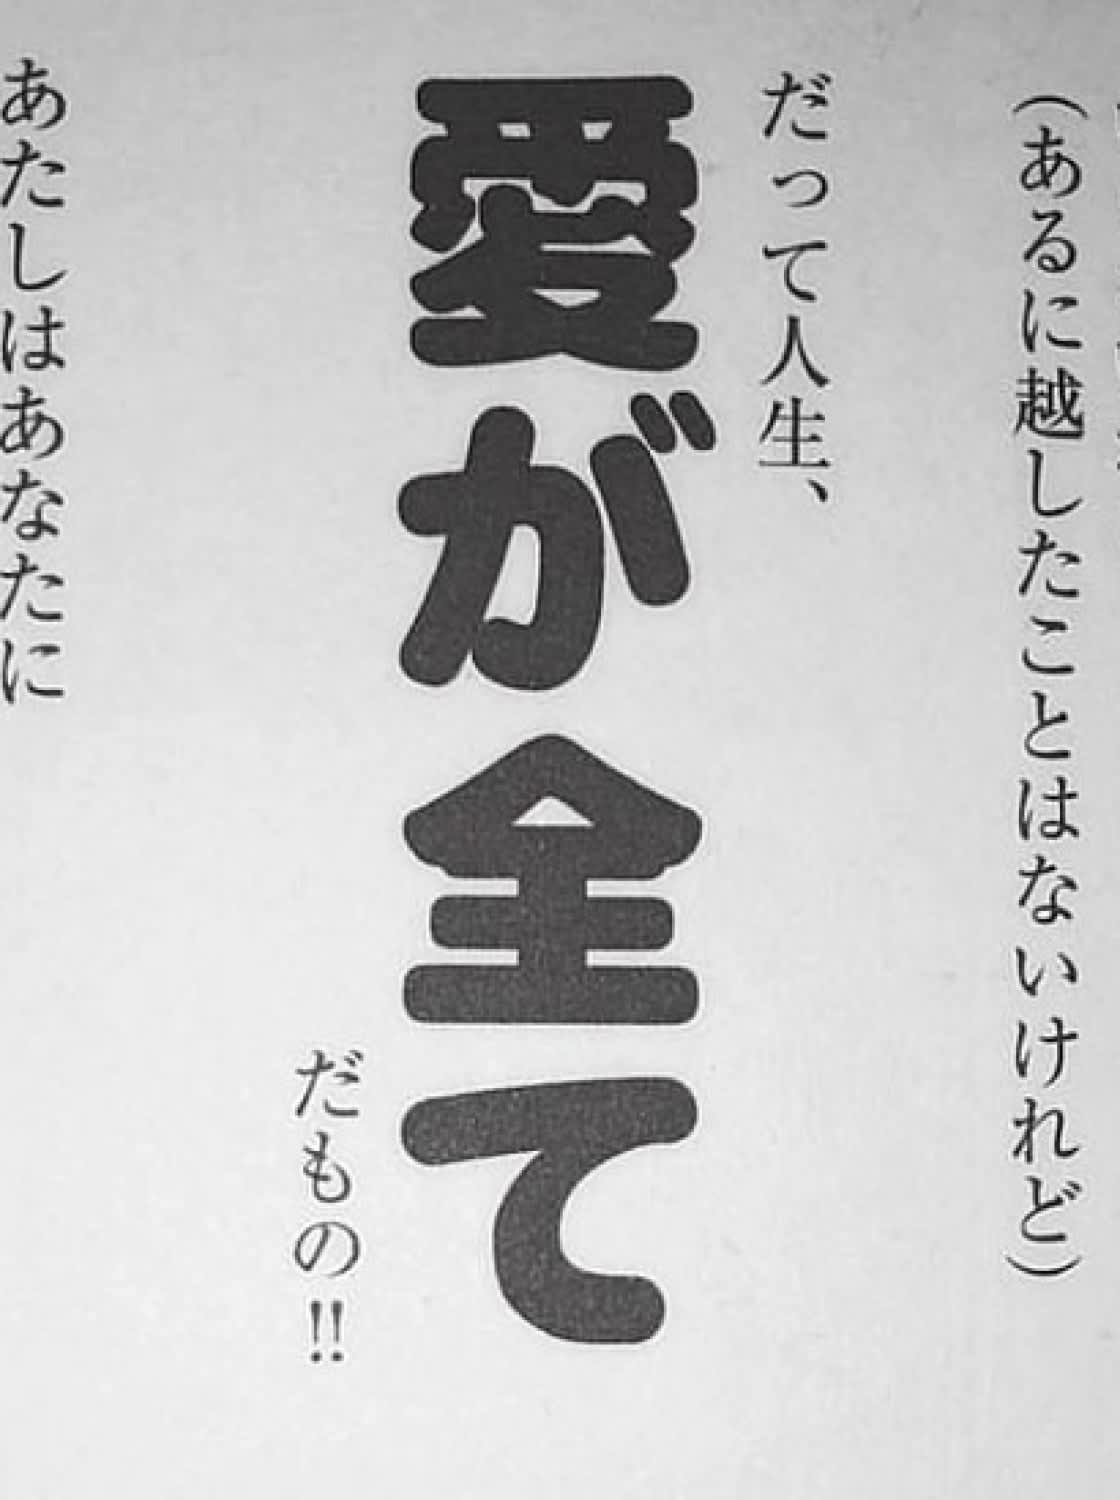 （あるに越したことはないけれど）
だって人生、
愛が全て
だもの!!
あたしはあなたに